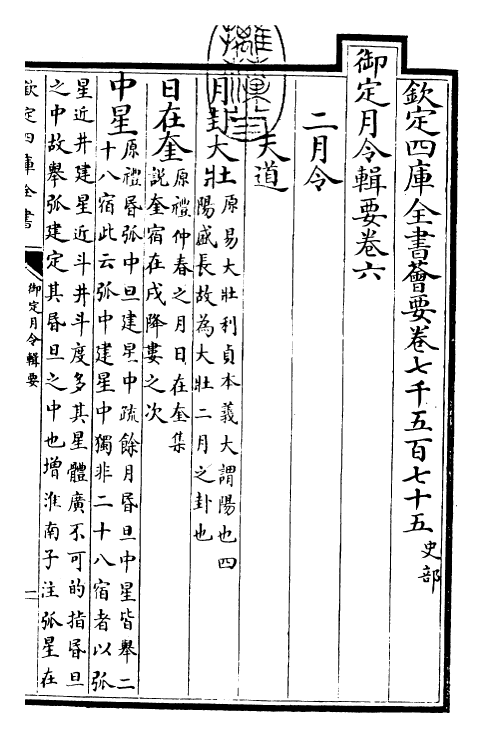 欽定四庫全書薈要卷七千五百七十五 史部
御定月令輯要卷六
二月令
天道
月卦大壯原易大壯利貞本義大謂陽也四
陽盛長故為大壯二月之卦也
日在奎原禮仲春之月日在奎集
說奎宿在戌降婁之次
中星原禮昏弧中旦建星中疏餘月昏旦中星皆舉二
十八宿此云弧中建星中獨非二十八宿者以弧
星近井建星近斗井斗度多其星體廣不可的指昏旦
之中故舉弧建定其昏旦之中也增淮南子注弧星在
欽定四庫全書
御定月令輯要